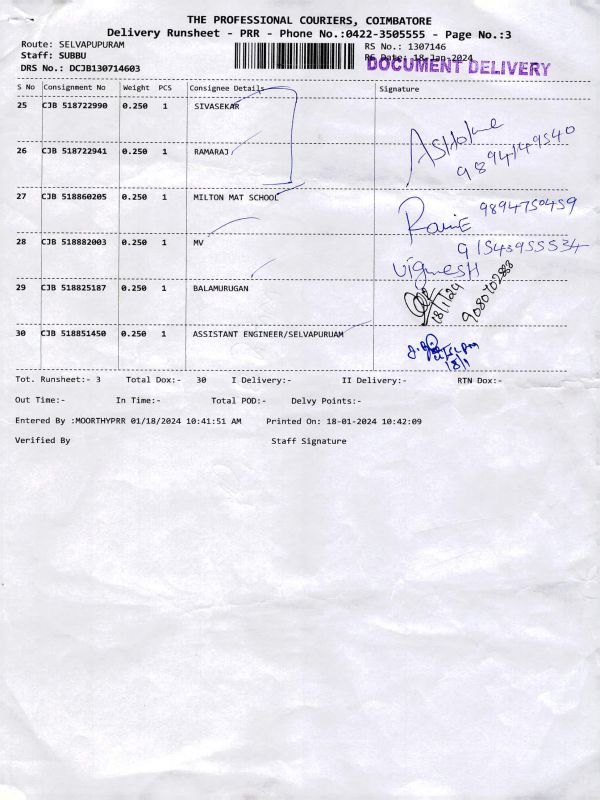 THE PROFESSIONAL COURIERS, COIMBATORE
Delivery Runsheet - PRR - Phone No.:0422-3505555 - Page No.:3
Route: SELVAPUPURAM
RS No.: 1307146
Staff: SUBBU
RS Date: 18-Jan-2024
DOCUMENT DELIVERY
DRS No.: DCJB130714603
S No Consignment No Weight PCS Consignee Details Signature
25 CJB 518722990 0.250 1 SIVASEKAR
26 CJB 518722941 0.250 1 RAMARAJ
9894149540
27 CJB 518860205 0.250 1 MILTON MAT SCHOOL
9894750459
28 CJB 518882003 0.250 1 MV
91543955534
Vignesh
29 CJB 518825187 0.250 1 BALAMURUGAN
18/1/24
30 CJB 518851450 0.250 1 ASSISTANT ENGINEER/SELVAPURUAM
18/1
Tot. Runsheet:- 3 Total Dox:- 30 I Delivery:- II Delivery:- RTN Dox:-
Out Time:- In Time:- Total POD:- Delvy Points:-
Entered By :MOORTHYPRR 01/18/2024 10:41:51 AM Printed On: 18-01-2024 10:42:09
Verified By Staff Signature